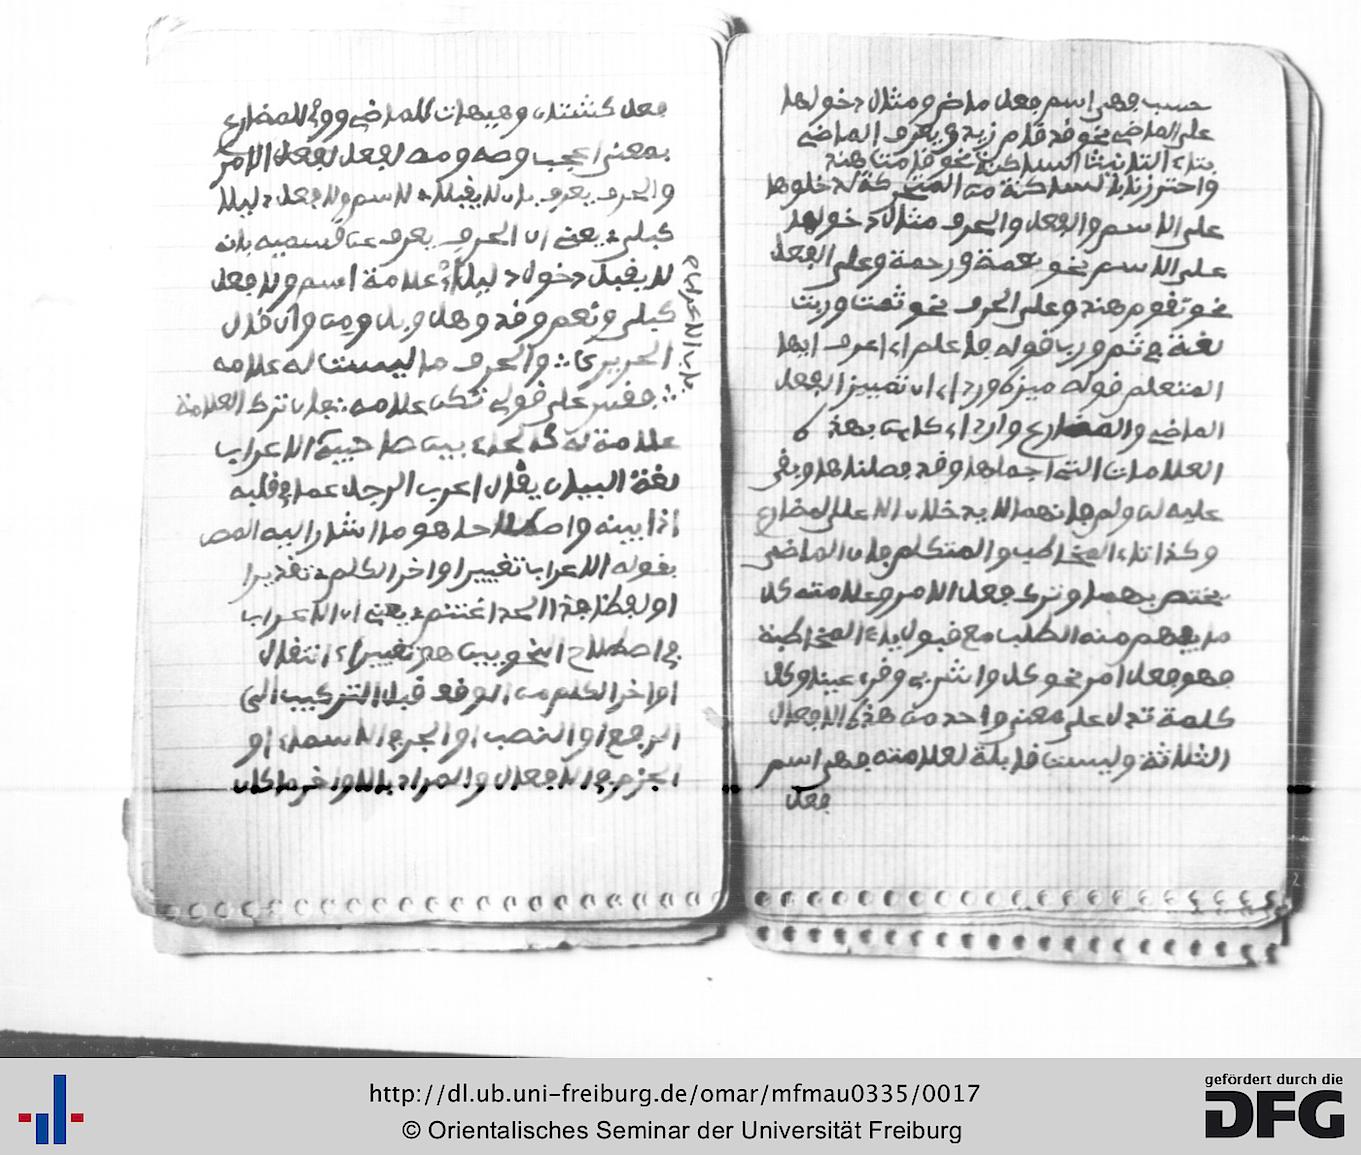 حسب فهي اسم فعل ماض ومثال دخولها
على الماضي نحو قد قام زيد ويعرف الماضي
بتاء التانيث الساكنة نحو قامت هند
واحترز بالساكنة من المتحركة لدخولها
على الاسم والفعل والحرف مثال دخولها
على الاسم نحو نعمة ورحمة وعلى الفعل
نحو تقوم هند وعلى الحرف نحو ثمت وربت
لغة في ثم ورب قوله فاعلم اي اعرف ايها
المتعلم قوله ميز اي ان تمييز الفعل
الماضي والمضارع كاين بهذه
العلامات التي اجملها وقد فصلناها وبقي
عليه لن ولم فانهما لا يدخلان الا على المضارع
وكذا تاء المخاطب والمتكلم فان الماضي
يختص بهما وترك فعل الامر وعلامته كل
ما يفهم منه الطلب مع قبول ياء المخاطبة
فهو فعل امر نحو كل واشرب وقري عينا وكل
كلمة تدل على معنى واحد من هذه الافعال
الثلاثة وليست قابلة لعلامته فهي اسم
فعل
فعل كشتان وهيهات للماضي ووي للمضارع
بمعنى اعجب وصه ومه لفعل الامر
والحرف يعرف بان لا يقبل لاسم ولا فعل دليلا
كبلى يعني ان الحرف يعرف عن قسميه بانه
لا يقبل دخول دليل اي علامة اسم ولا فعل
كبلى ونعم وقد وهل وبل ومن وان قال
الحريري والحرف ما ليست له علامه
فقس على قولي تكن علامه فان ترك العلامة
علامة له باب الاعراب
لغة البيان يقال اعرب الرجل عما في قلبه
اذا بينه واصطلاحا هو ما اشار اليه المص
بقوله الاعراب تغيير اواخر الكلم تقديرا
او لفظا فذا الحد اغتنم يعني ان الاعراب
في اصطلاح النحويين هو تغيير اي انتقال
اواخر الكلم من الوقف قبل التركيب الى
الرفع او النصب او الجر في الاسماء او
الجزم في الافعال والمراد بالاواخر ما كان
باب الاعراب
http://dl.ub.uni-freiburg.de/omar/mfmau0335/0017
© Orientalisches Seminar der Universität Freiburg
gefördert durch die
DFG